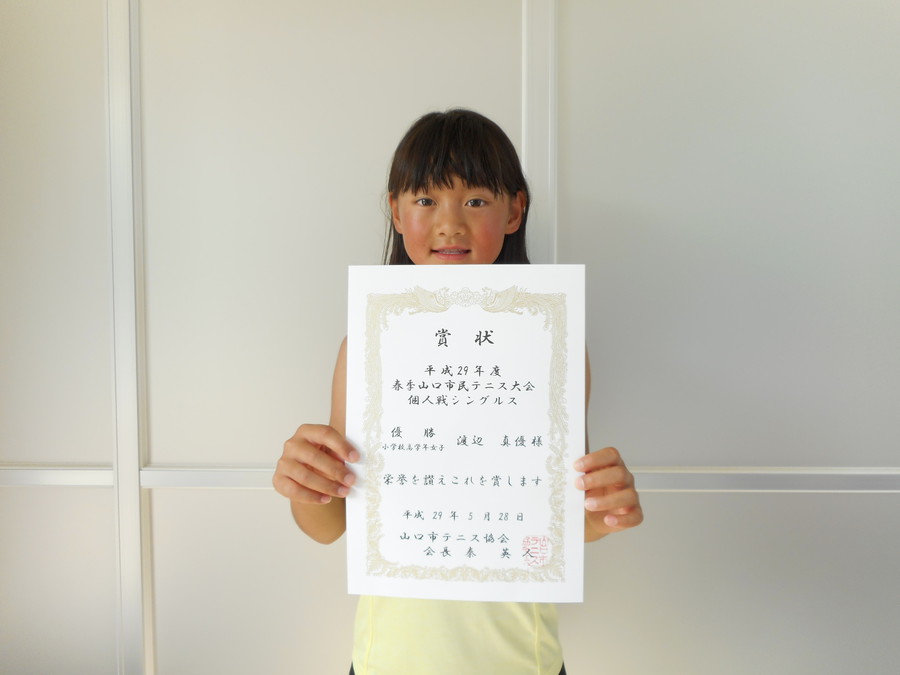 賞状
平成29年度
春季山口市民テニス大会
個人戦シングルス
優勝
小学校高学年女子
渡辺 真優様
栄誉を讃えこれを賞します
平成 29 年 5 月 28 日
山口市テニス協会
会長 秦 英人